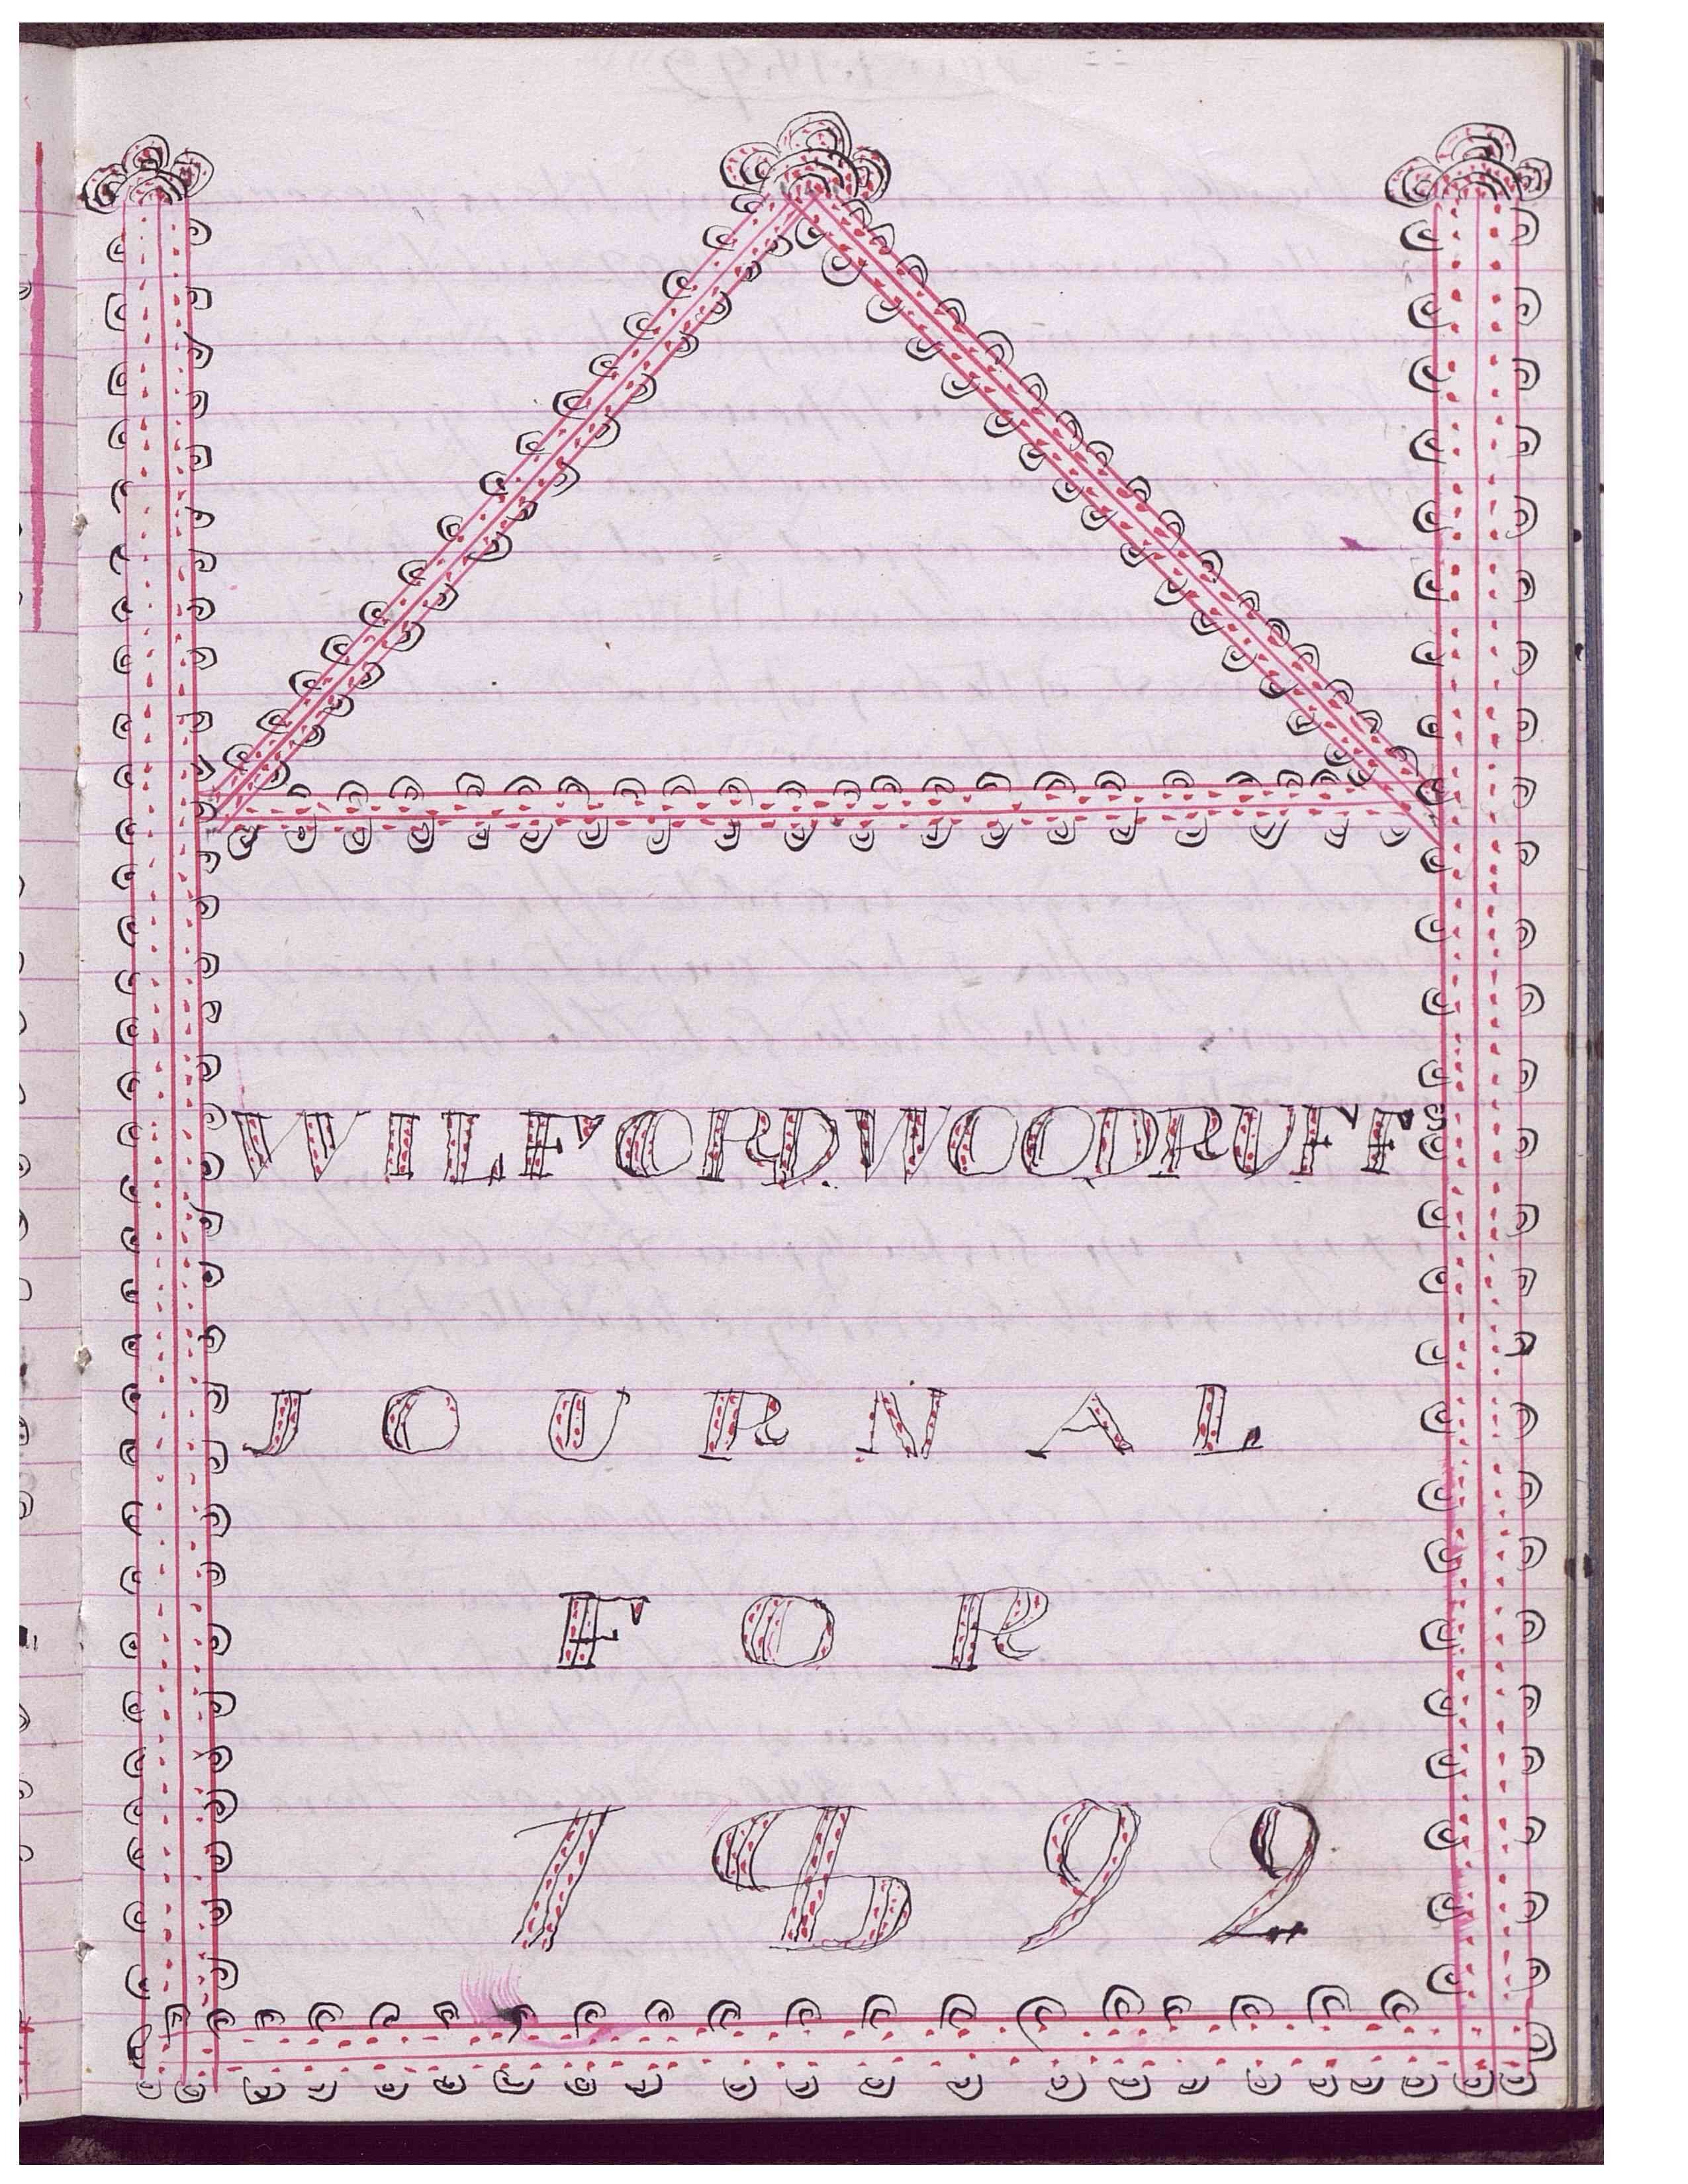 WILFORD WOODRUFFs
JOURNAL
FOR
1892